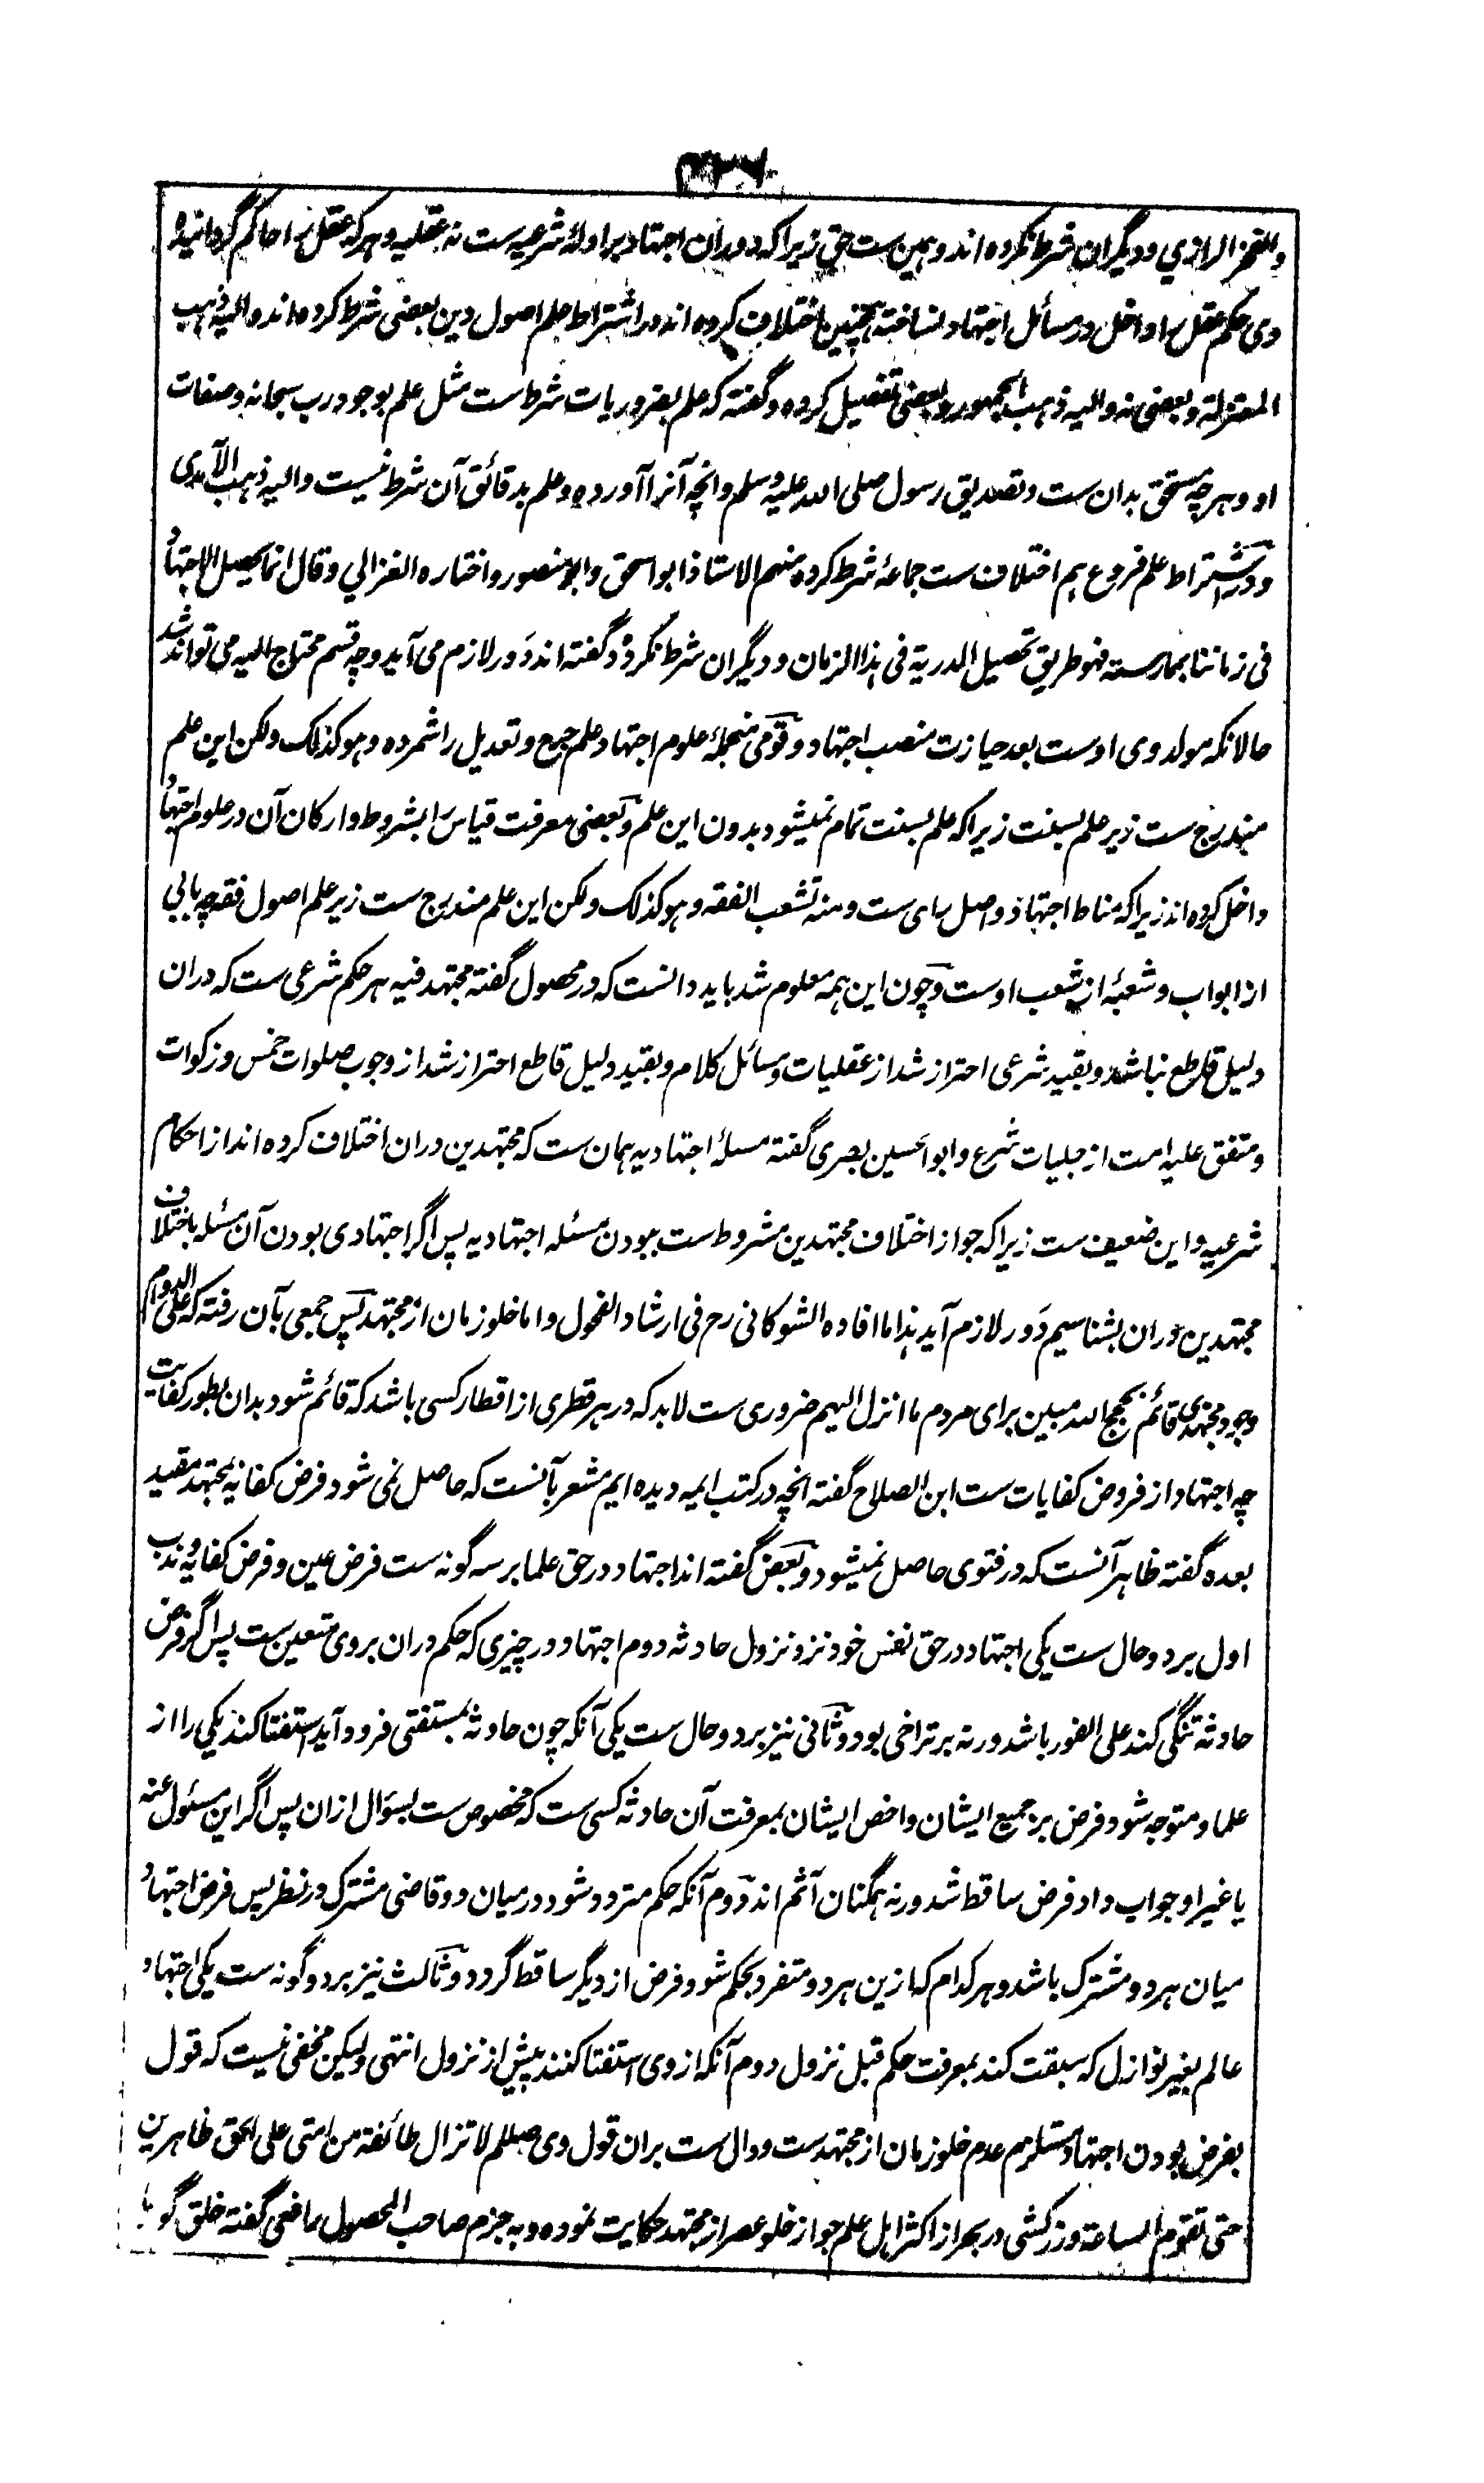 والفخر الرازي ودیگران شرط نکرده اند وہمین ست حق زیرا کہ دوران اجتهاد بر ادلۂ شرعیہ ست نہ عقلیہ وہر کہ عقل را حاکم گردانیدہ
وی حکم عقل را داخل در مسائل اجتهاد نساختہ ہمچنین اختلاف کردہ اند در اشتراط علم اصول دین بعضی شرط کردہ اند والیہ ذہب
المعتزلة وبعضی نہ والیہ ذہب الجمهور وبعضی تفصیل کردہ وگفتہ کہ علم بضروریات شرط ست مثل علم بوجود رب سبحانہ وصفات
او وہرچہ مستحق بدان ست وتصدیق رسول صلی اللہ علیہ وسلم وانچہ آنرا آوردہ وعلم بدقائق آن شرط نیست والیہ ذہب الآمدی
ودر اشتراط علم فروع ہم اختلاف ست جماعۂ شرط کردہ منهم الاستاذ ابو اسحق وابو منصور واختارہ الغزالي وقال انما یحصل الاجتهاد
فی زماننا بممارستہ فهو طریق تحصیل الدریة فی ہذا الزمان ودیگران شرط نکردہ وگفتہ اند دَور لازم می آید وچہ قسم محتاج الیہ می تواند شد
حالانکہ مولد وی اوست بعد حیازت منصب اجتهاد وقومی منجملۂ علوم اجتهاد علم جرح وتعدیل را شمردہ وہو کذلک ولکن این علم
مندرج ست زیر علم بسنت زیرا کہ علم بسنت تمام نمیشود بدون این علم وبعضی معرفت قیاس را بشروط وارکان آن در علوم اجتهاد
داخل کردہ اند زیرا کہ مناط اجتهاد واصل رای ست ومنہ تشعب الفقہ وہو کذلک ولکن این علم مندرج ست زیر علم اصول فقہ چہ بابی
از ابواب وشعبۂ از شعب اوست وچون این ہمہ معلوم شد باید دانست کہ در محصول گفتہ مجتهد فیہ ہر حکم شرعی ست کہ دران
دلیل قاطع نباشد وبقید شرعی احتراز شد از عقلیات ومسائل کلام وبقید دلیل قاطع احتراز شد از وجوب صلوات خمس وزکوات
ومتفق علیہ امت از جلیات شرع وابو الحسین بصری گفتہ مسئلۂ اجتهادیہ ہمان ست کہ مجتهدین دران اختلاف کردہ اند از احکام
شرعیہ واین ضعیف ست زیرا کہ جواز اختلاف مجتهدین مشروط ست ببودن مسئلہ اجتهادیہ پس اگر اجتهادی بودن آن مسئلہ باختلاف
مجتهدین دران بشناسیم دَور لازم آید ہذا ما افادہ الشوکانی رح فی ارشاد الفحول واما خلو زمان از مجتهد پس جمعی بآن رفتہ کہ علی الدوام
وجود مجتهدی قائم بحجج اللہ مبین برای مردم ما انزل الیهم ضروری ست لابد کہ در ہر قطری از اقطار کسی باشد کہ قائم شود بدان بطور کفایت
چہ اجتهاد از فروض کفایات ست ابن الصلاح گفتہ انچہ در کتب ایمہ دیدہ ایم مشعر بآنست کہ حاصل نمی شود فرض کفایہ بمجتهد مقید
بعدہ گفتہ ظاہر آنست کہ در فتوی حاصل نمیشود وبعض گفتہ اند اجتهاد در حق علما بر سہ گونہ ست فرض عین وفرض کفایہ وندب
اول بر دو حال ست یکی اجتهاد در حق نفس خود نزد نزول حادثہ دوم اجتهاد در چیزی کہ حکم دران بروی متعین ست پس اگر فرض
حادثہ تنگی کند علی الفور باشد ورنہ بر تراخی بود وثانی نیز بر دو حال ست یکی آنکہ چون حادثہ بمستفتی فرود آید استفتا کند یکی را از
علما ومتوجہ شود فرض بر جمیع ایشان واخص ایشان بمعرفت آن حادثہ کسی ست کہ مخصوص ست بسؤال ازان پس اگر این مسئول عنہ
یا غیر او جواب داد فرض ساقط شد ورنہ ہمگنان آثم اند دوم آنکہ حکم متردد شود در میان دو قاضی مشترک در نظر پس فرض اجتهاد
میان ہر دو مشترک باشد وہر کدام کہ ازین ہر دو متفرد بحکم شود فرض از دیگر ساقط گردد وثالث نیز بر دو گونہ ست یکی اجتهاد
عالم بغیر نوازل کہ سبقت کند بمعرفت حکم قبل نزول دوم آنکہ از وی استفتا کنند پیش از نزول انتهی ولیکن مخفی نیست کہ قول
بفرض بودن اجتهاد مستلزم عدم خلو زمان از مجتهد ست ودال ست بران قول وی صللم لا تزال طائفة من امتی علی الحق ظاہرین
حتی تقوم الساعة وزرکشی در بحر از اکثر اہل علم جواز خلو عصر از مجتهد حکایت نمودہ وبہ جزم صاحب المحصول رافعی گفتہ خلق گویا